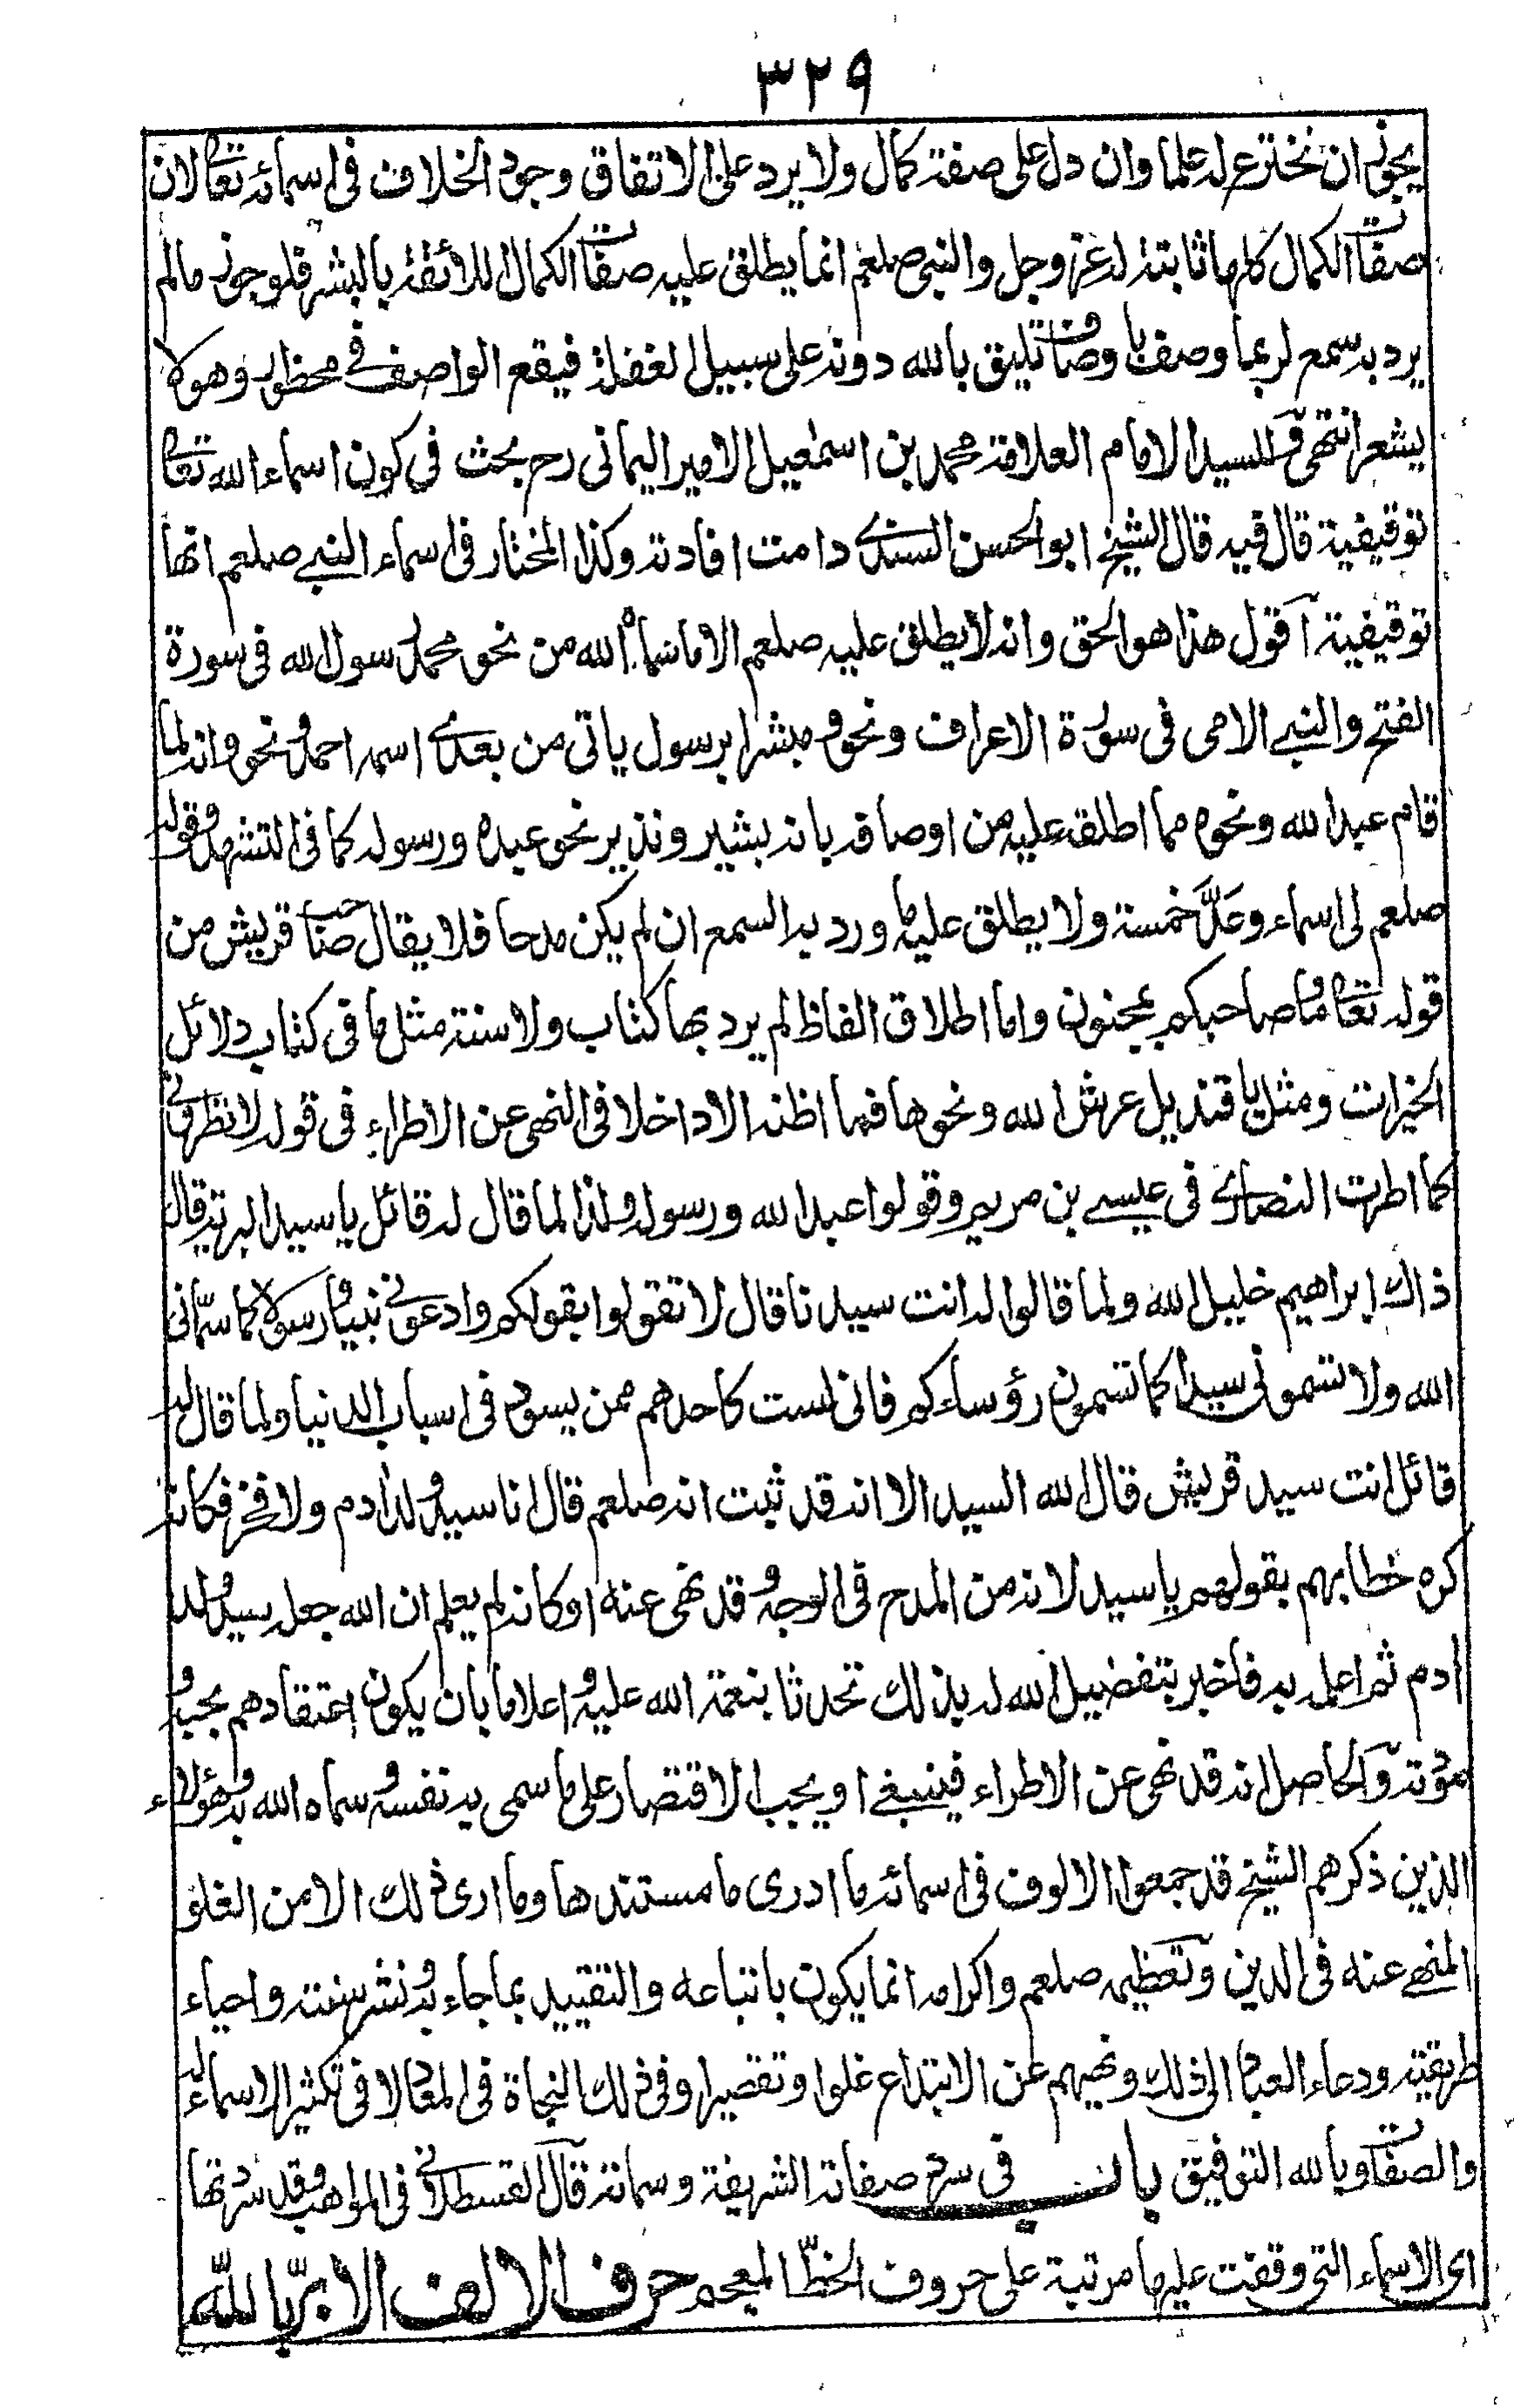 ٣٢٩
يجوز ان نخترع له علما وان دل على صفة كمال ولا يرد على الاتفاق وجود الخلاف في اسمائه تعالى لان
صفات الكمال كلها ثابتة له عز وجل والنبي صلعم انما يطلق عليه صفات الكمال اللائقة بالبشر فلو جوز ما لم
يرد به سمع لربما وصف باوصاف تليق بالله دونه على سبيل الغفلة فيقع الواصف في محظور وهو لا
يشعر انتهى وللسيد الامام العلامة محمد بن اسمعيل الامير اليماني رح بحث في كون اسماء الله تعالى
توقيفية قال فيه قال الشيخ ابو الحسن السندي دامت افادته وكذا المختار في اسماء النبي صلعم انها
توقيفية آقول هذا هو الحق وانه لا يطلق عليه صلعم الا ما سماه الله من نحو محمد رسول الله في سورة
الفتح والنبي الامي في سورة الاعراف ونحو ومبشرا برسول ياتي من بعدي اسمه احمد ونحو وانه لما
قام عبد الله ونحوه مما اطلق عليه من اوصافه بانه بشير ونذير نحو عبده ورسوله كما في التشهد وقوله
صلعم لي اسماء وعدَّ خمسة ولا يطلق عليه ما ورد به السمع ان لم يكن مدحا فلا يقال صاحب قريش من
قوله تعالى وما صاحبكم بمجنون واما اطلاق الفاظ لم يرد بها كتاب ولا سنة مثل ما في كتاب دلائل
الخيرات ومثل يا قنديل عرش الله ونحوها فما اظنه الا داخلا في النهي عن الاطراء في قوله لا تطروني
كما اطرت النصارى في عيسى بن مريم وقولوا عبد الله ورسوله ولذا لما قال له قائل يا سيد البرية قال
ذاك ابراهيم خليل الله ولما قالوا له انت سيدنا قال لا تقولوا بقولكم وادعوني نبيا ورسولا كما سمّاني
الله ولا تسموني سيدا كما تسمون رؤساءكم فاني لست كاحدهم ممن يسود في اسباب الدنيا ولما قال له
قائل انت سيد قريش قال الله السيد الا انه قد ثبت انه صلعم قال انا سيد ولد ادم ولا فخر فكانه
كره خطابهم بقولهم يا سيد لانه من المدح في الوجه وقد نهى عنه او كانه لم يعلم ان الله جعله سيد ولد
ادم ثم اعلم به فاخبر بتفضيل الله له بذلك تحدثا بنعمة الله عليه واعلاما بان يكون اعتقادهم بحب و
مودته والحاصل انه قد نهى عن الاطراء فينبغي او يجب الاقتصار على ما سمى به نفسه وسماه الله به وهؤلاء
الذين ذكرهم الشيخ قد جمعوا الالوف في اسمائه ما ادرى ما مستندها وما ارى ذلك الا من الغلو
المنهي عنه في الدين وتعظيمه صلعم واكرامه انما يكون باتباعه والتقييد بما جاء به ونشر سنته واحياء
طريقته ودعاء العباد الى ذلك ونهيهم عن الابتداع غلوا وتقصيرا وفي ذلك النجاة في المعاد لا في تكثير الاسماء له
والصفات وبالله التوفيق باب في سرد صفاته الشريفة وسماته قال القسطلاني في المواهب وقد سردتها
اى الاسماء التي وقفت عليها مرتبة على حروف الخطّ المعجم حرف الالف الابرّ بالله